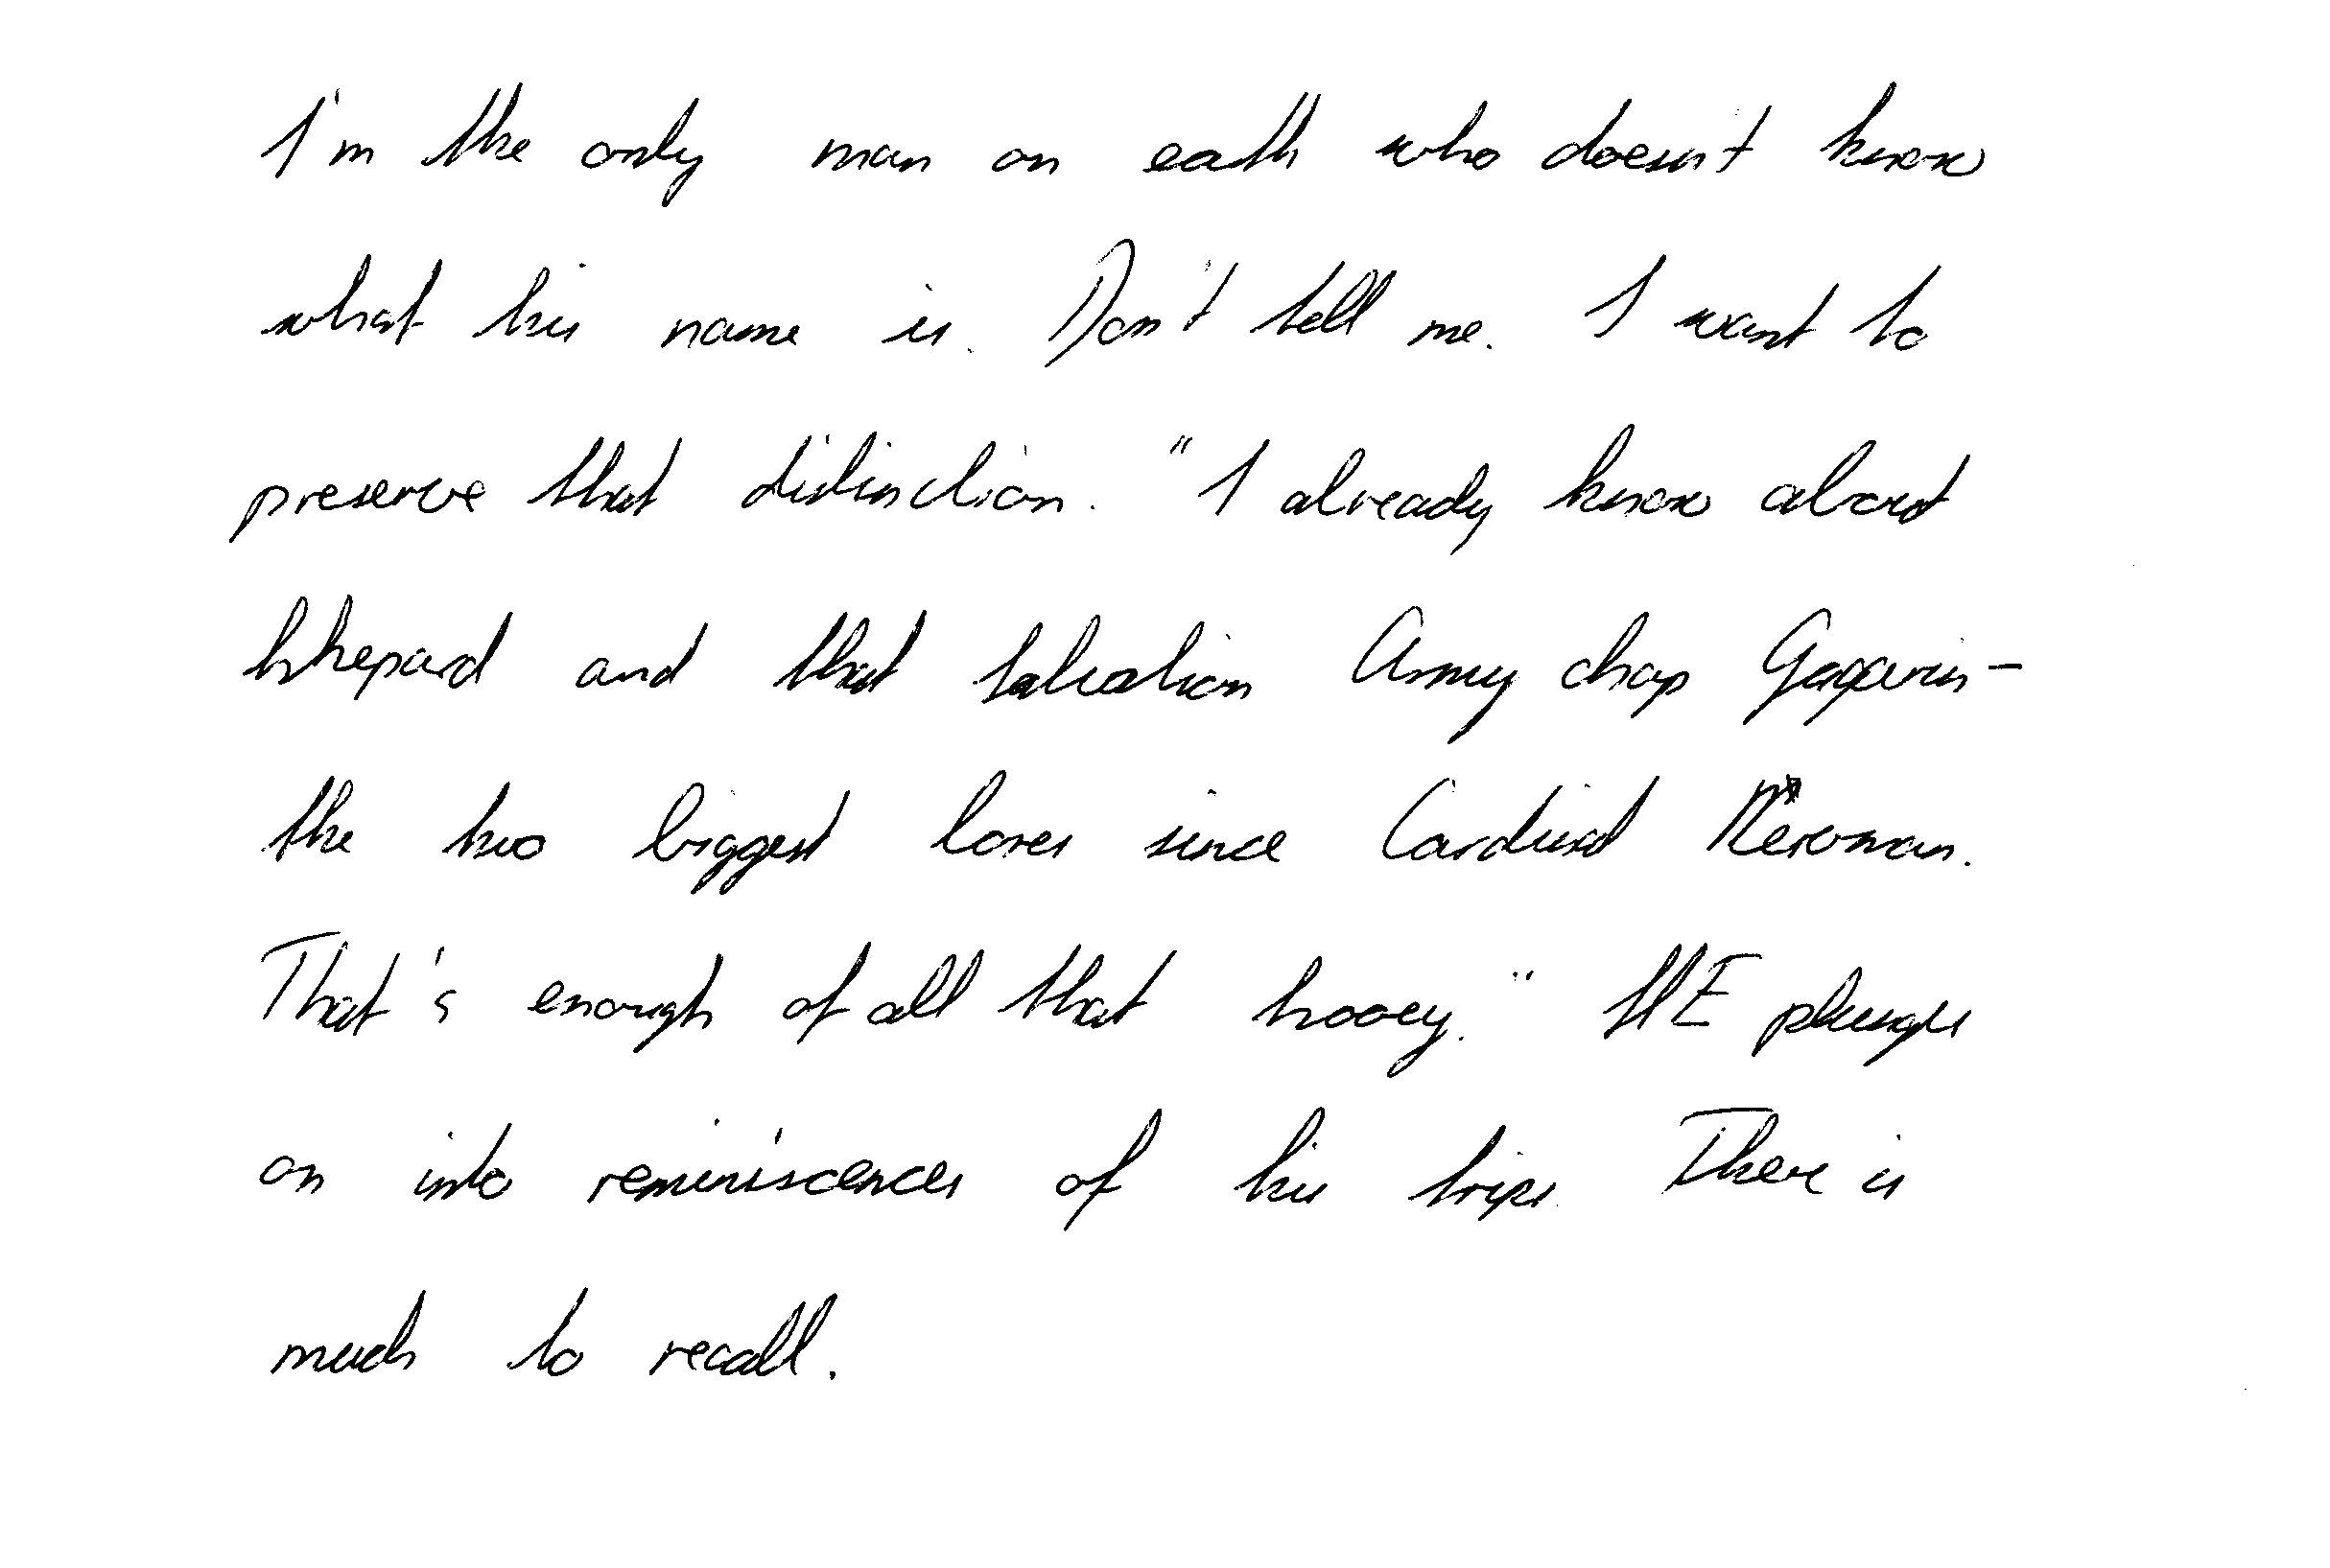 I'm the only man on eath who doesn't know
what his name is. Don't tell me. I want to
preserve that distinction. "I already know about
Shepard and that Salvation Army chap Gagarin -
the two biggest bores since Cardinal Newman.
That's enough of all that hooey." HE plunges
on into reminiscences of his trips. There is
much to recall.